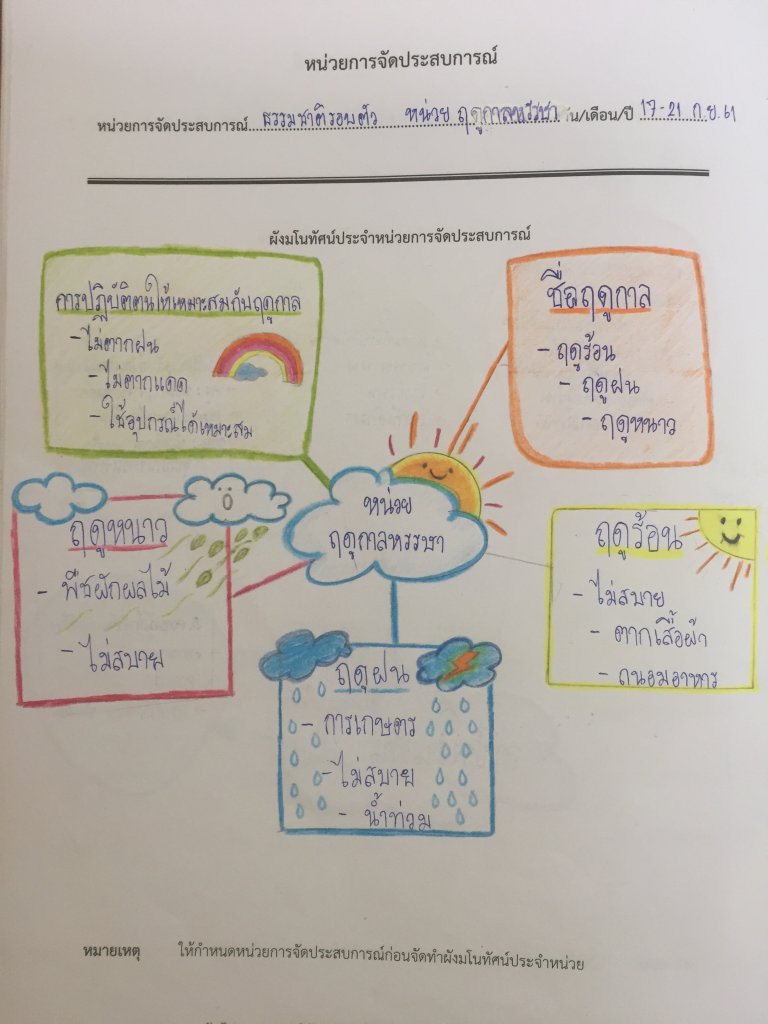 หน่วยการจัดประสบการณ์
หน่วยการจัดประสบการณ์ ธรรมชาติรอบตัว หน่วย ฤดูกาลหรรษา วัน/เดือน/ปี 17-21 ก.ย. 61
ผังมโนทัศน์ประจำหน่วยการจัดประสบการณ์
การปฏิบัติตนให้เหมาะสมกับฤดูกาล
- ไม่ตากฝน
- ไม่ตากแดด
- ใช้อุปกรณ์ได้เหมาะสม
ชื่อฤดูกาล
- ฤดูร้อน
- ฤดูฝน
- ฤดูหนาว
หน่วย
ฤดูกาลหรรษา
ฤดูหนาว
- พืชผักผลไม้
- ไม่สบาย
ฤดูร้อน
- ไม่สบาย
- ตากเสื้อผ้า
- ถนอมอาหาร
ฤดูฝน
- การเกษตร
- ไม่สบาย
- น้ำท่วม
หมายเหตุ ให้กำหนดหน่วยการจัดประสบการณ์ก่อนจัดทำผังมโนทัศน์ประจำหน่วย